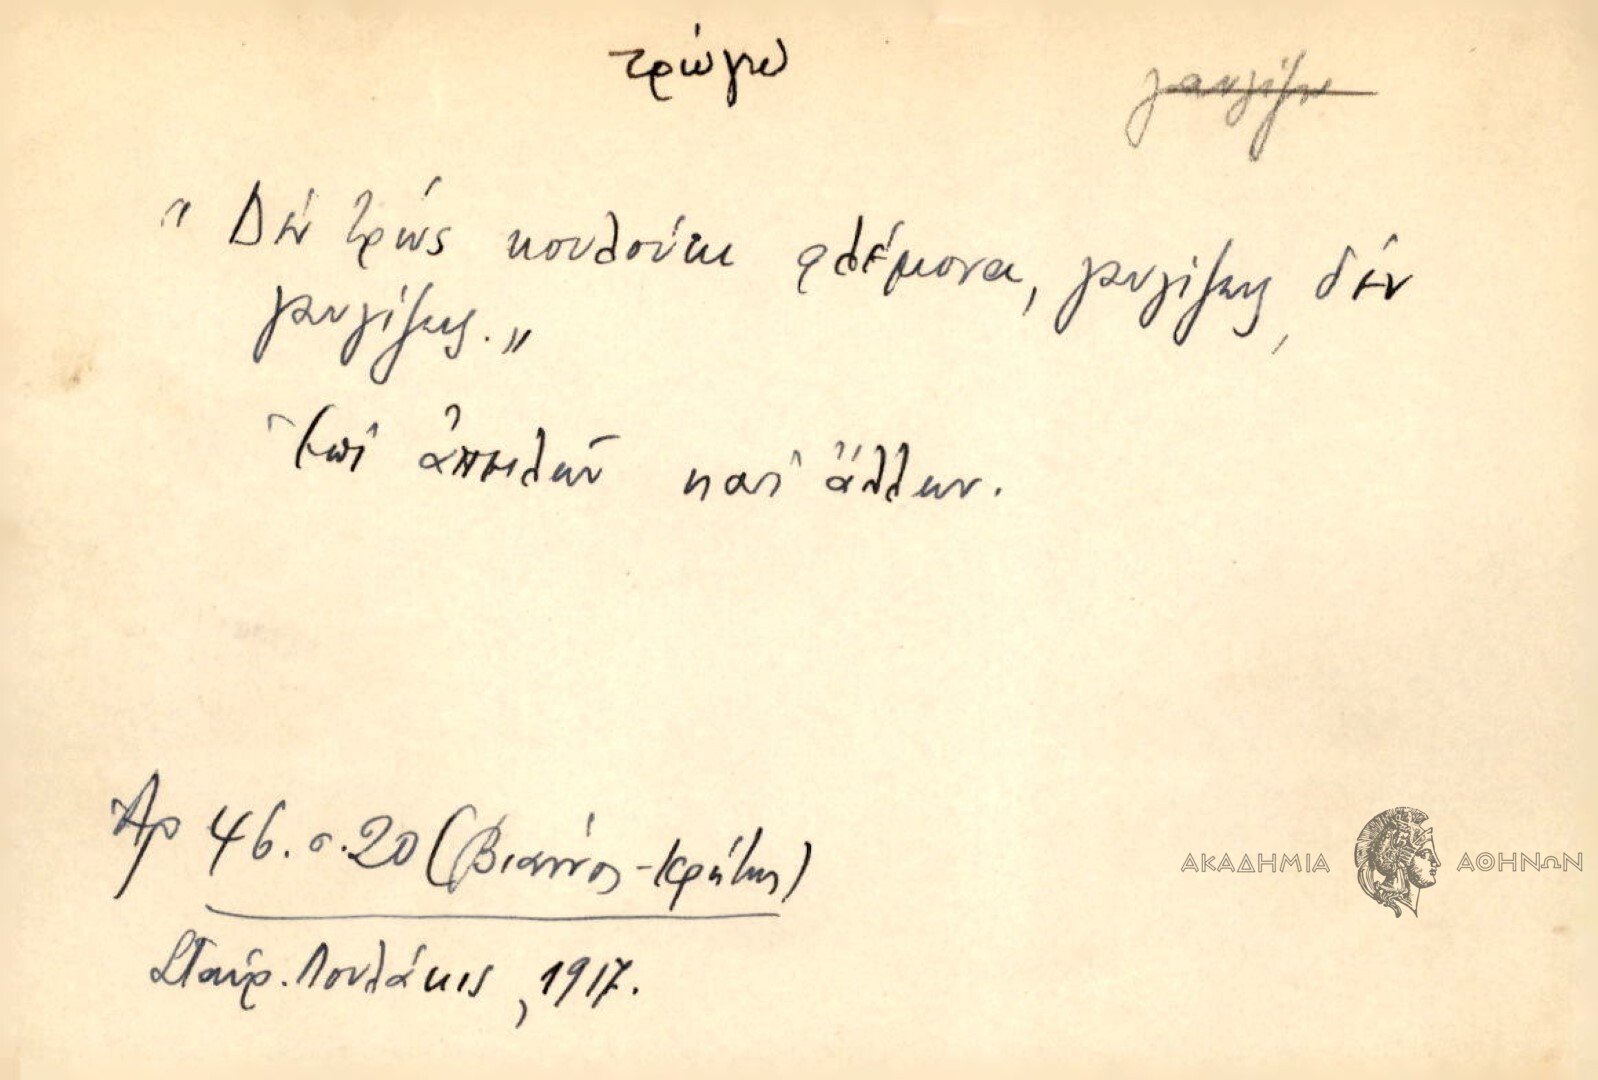 τρώγω
γαυγίζω
"Δέν τρώς κουλούκι φλέμονα, γαυγίζεις, δέν
γαυγίζεις."
Ἐπί ἀπειλῶν καί ἄλλων.
Ἀρ 46. σ. 20 (Βιάννος - Κρήτης)
Σταύρ. Λουλάκις, 1917.
ΑΚΑΔΗΜΙΑ ΑΘΗΝΩΝ